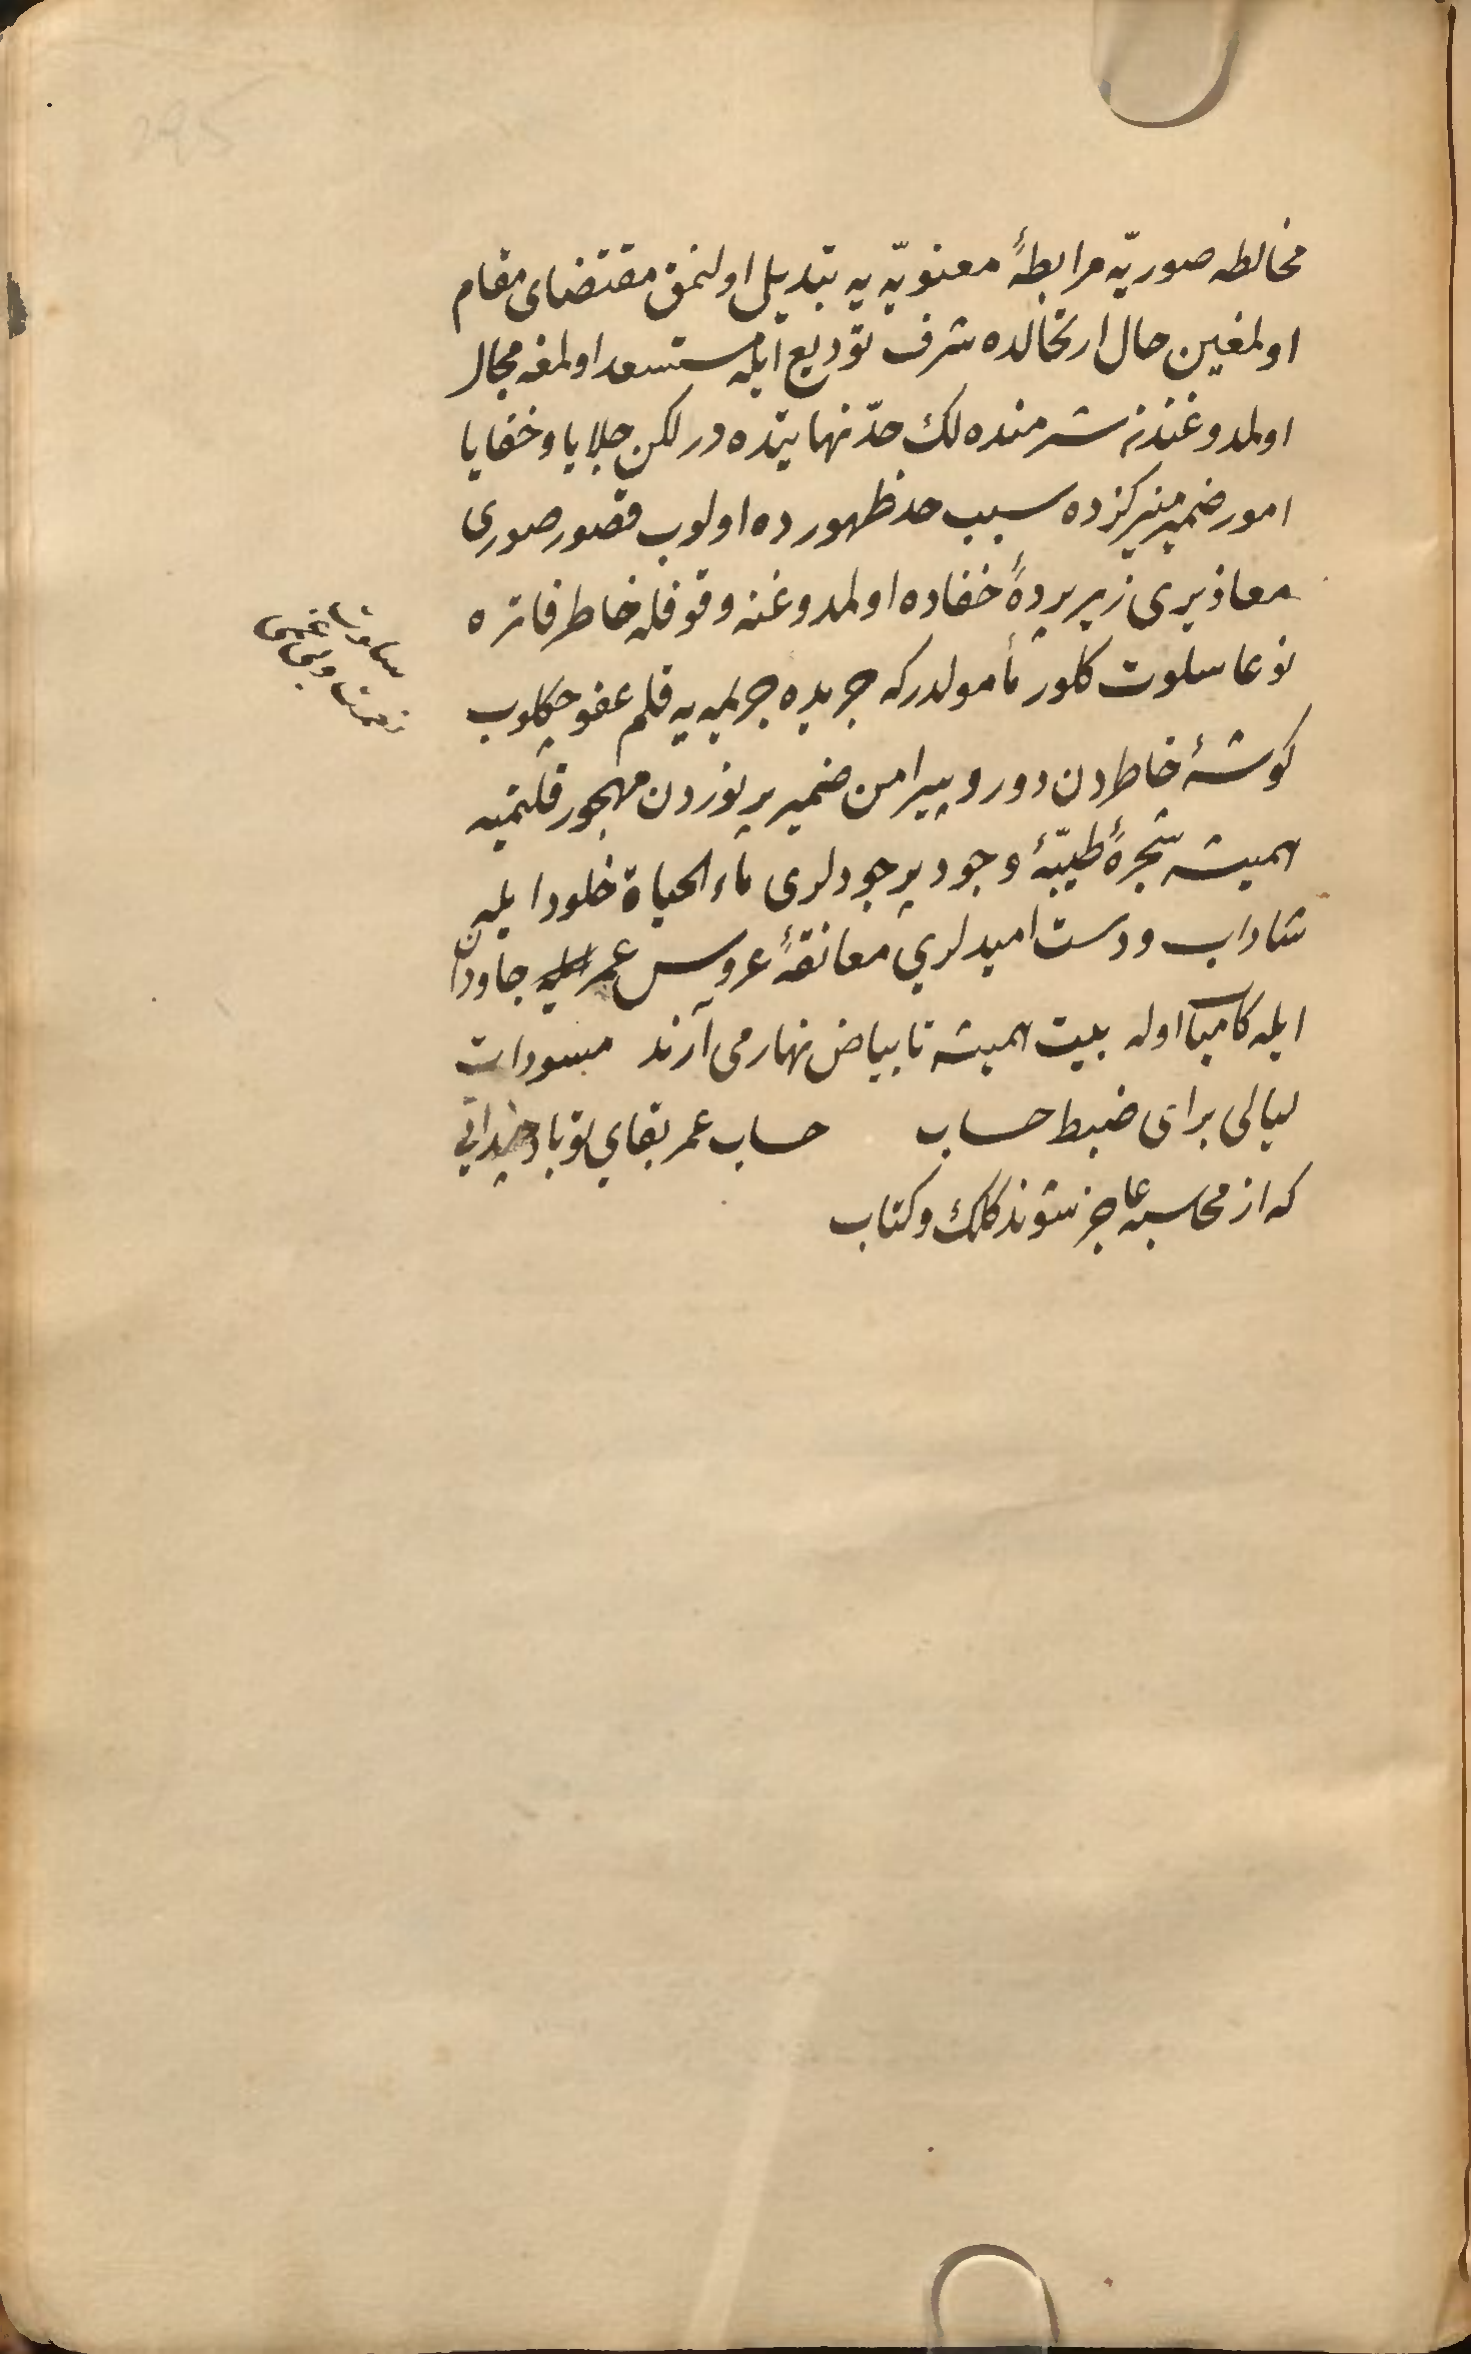 مخالطه صوريّه مرابطهٔ معنويّه يه تبديل اولنمق مقتضاى مقام
اولمغين حال ارتحالده شرف توديع ايله مستسعد اولمغه مجال
اولمدوغندن شرمنده لك حدّ نهايتده در لكن جلايا و خفايا
امور ضمير منيركزده سبب حد ظهورده اولوب قصور صورى
معاذيرى زير پردهٔ خفاده اولمدوغنه وقوفله خاطر فاتره
نوعا سلوت كلور مأمولدركه جريده جريمه يه قلم عفو چكلوب
كوشهٔ خاطردن دور و پيرامن ضمير پر نوردن مهجور قلنميه
هميشه شجرهٔ طيّبهٔ وجود پر جودلرى ماء الحياة خلود ايله
شاداب و دست اميدلرى معانقهٔ عروس عمر جاودان
ايله كامياب اوله بيت هميشه تا ببياض نهار مى آرند مسودات
ليالى براى ضبط حساب حساب عمر بقاى تو باد چندانى
كه از محاسبه عاجز شوند كلك و كتاب